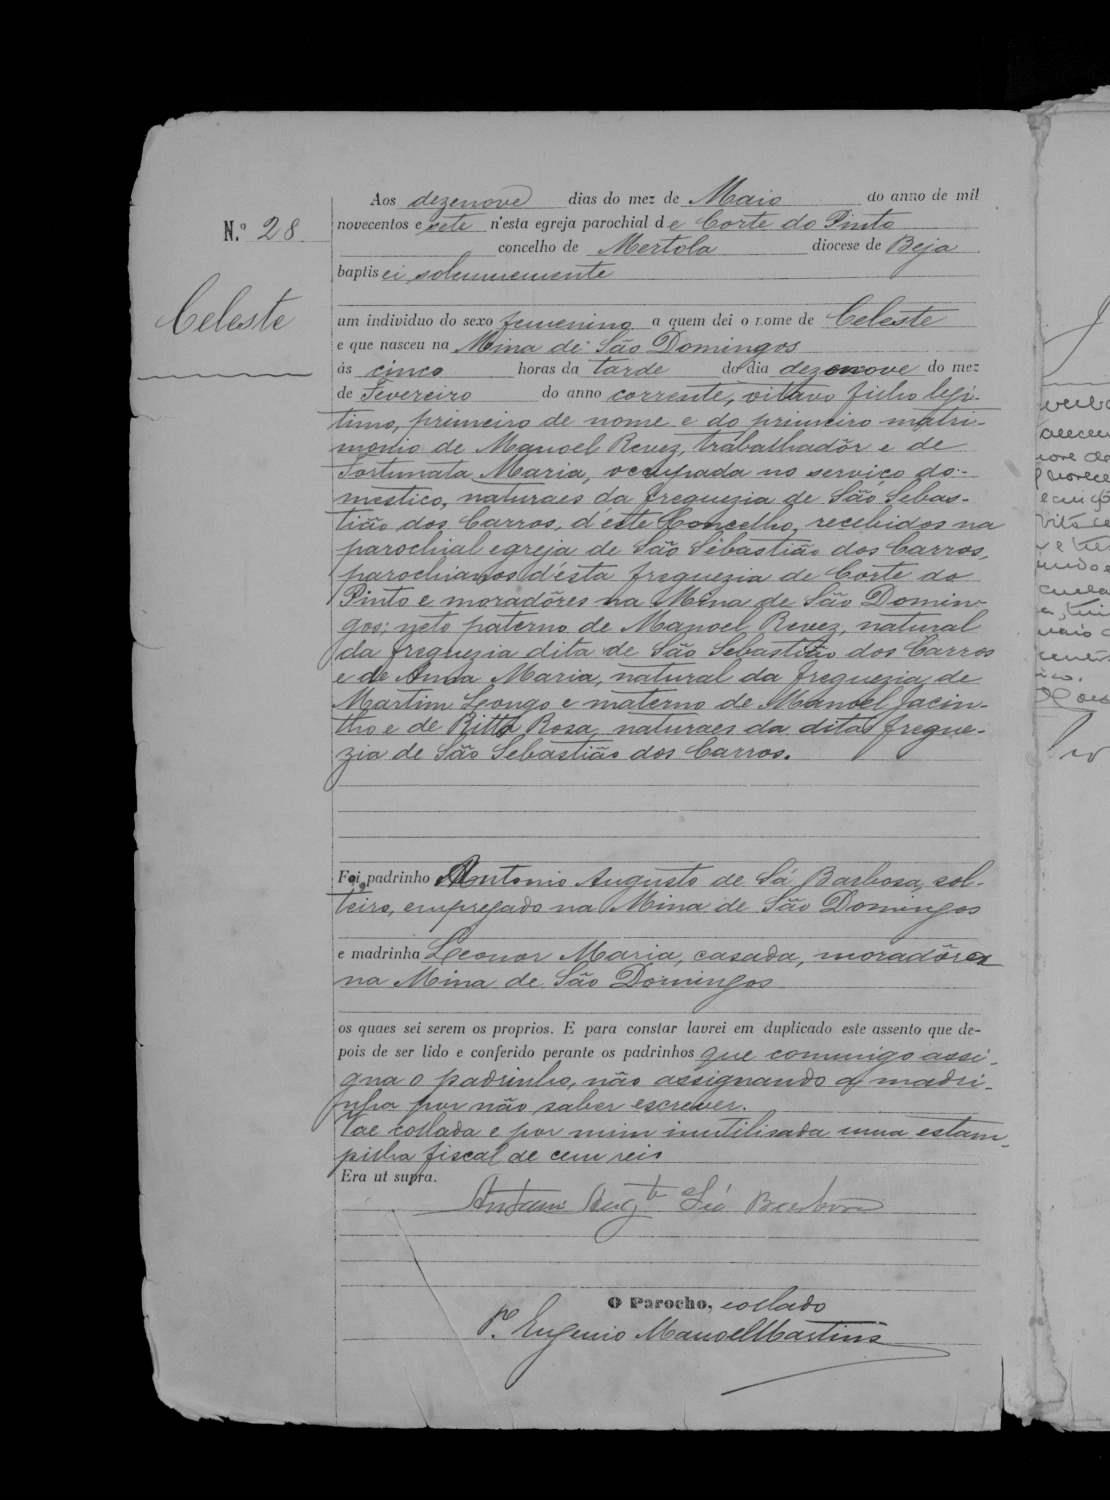 N.º 28
Celeste
Aos dezenove dias do mez de Maio do anno de mil
novecentos e sete n'esta egreja parochial de Corte do Pinto
concelho de Mertola diocese de Beja
baptisei solemnemente
um individuo do sexo femenino a quem dei o nome de Celeste
e que nasceu na Mina de São Domingos
ás cinco horas da tarde do dia dezenove do mez
de Fevereiro do anno corrente, oitavo filho legi-
timo, primeiro de nome e do primeiro matri-
monio de Manoel Revez, trabalhadôr e de
Fortunata Maria, occupada no serviço do-
mestico, naturaes da freguezia de São Sebas-
tião dos Carros, d'éste Concelho, recebidos na
parochial egreja de São Sebastião dos Carros,
parochianos d'ésta freguezia de Corte do
Pinto e moradôres na Mina de São Domin-
gos; neto paterno de Manoel Revez, natural
da freguezia dita de São Sebastião dos Carros
e de Anna Maria, natural da freguezia de
Martim Longo e materno de Manoel Jacin-
tho e de Ritta Rosa, naturaes da dita fregue-
zia de São Sebastião dos Carros.
Foi padrinho Antonio Augusto de Sá Barbosa, sol-
teiro, empregado na Mina de São Domingos
e madrinha Leonor Maria, casada, moradôra
na Mina de São Domingos
os quaes sei serem os proprios. E para constar lavrei em duplicado este assento que de-
pois de ser lido e conferido perante os padrinhos que commigo assi-
gna o padrinho, não assignando a madri-
nha por não saber escrever.
Vae collada e por mim inutilisada uma estam-
pilha fiscal de cem reis
Era ut supra.
Antonio Augto Sá Barbosa
O Parocho, collado
Pe. Eugenio Manoel Martins